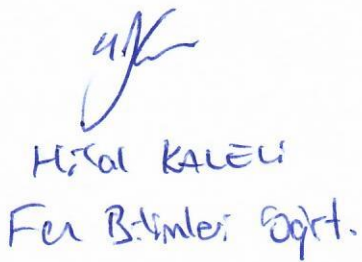 Hilal KALELİ
Fen Bilimleri Öğrt.